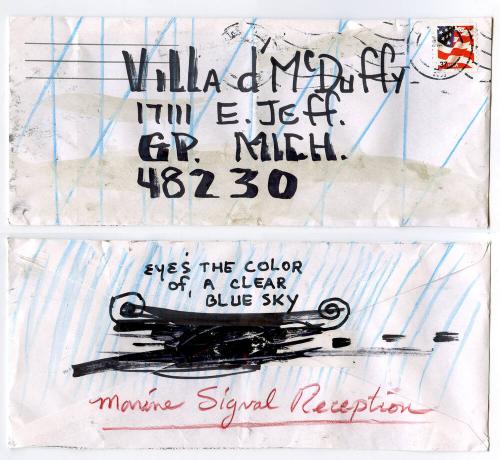 VILLA d'McDuffy
17111 E. JEFF.
GP. MICH.
48230
EYE'S THE COLOR
OF, A CLEAR
BLUE SKY
Marine Signal Reception